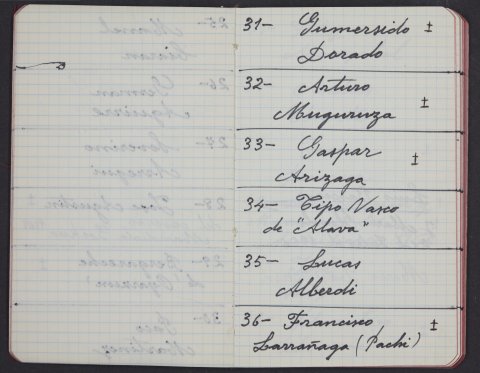 31- Gumersido ±
Dorado
32- Arturo
Muguruza ±
33- Gaspar
Arizaga ±
34- Tipo Vasco
de "Alava"
35- Lucas
Alberdi
36- Francisco ±
Larrañaga (Pachi)